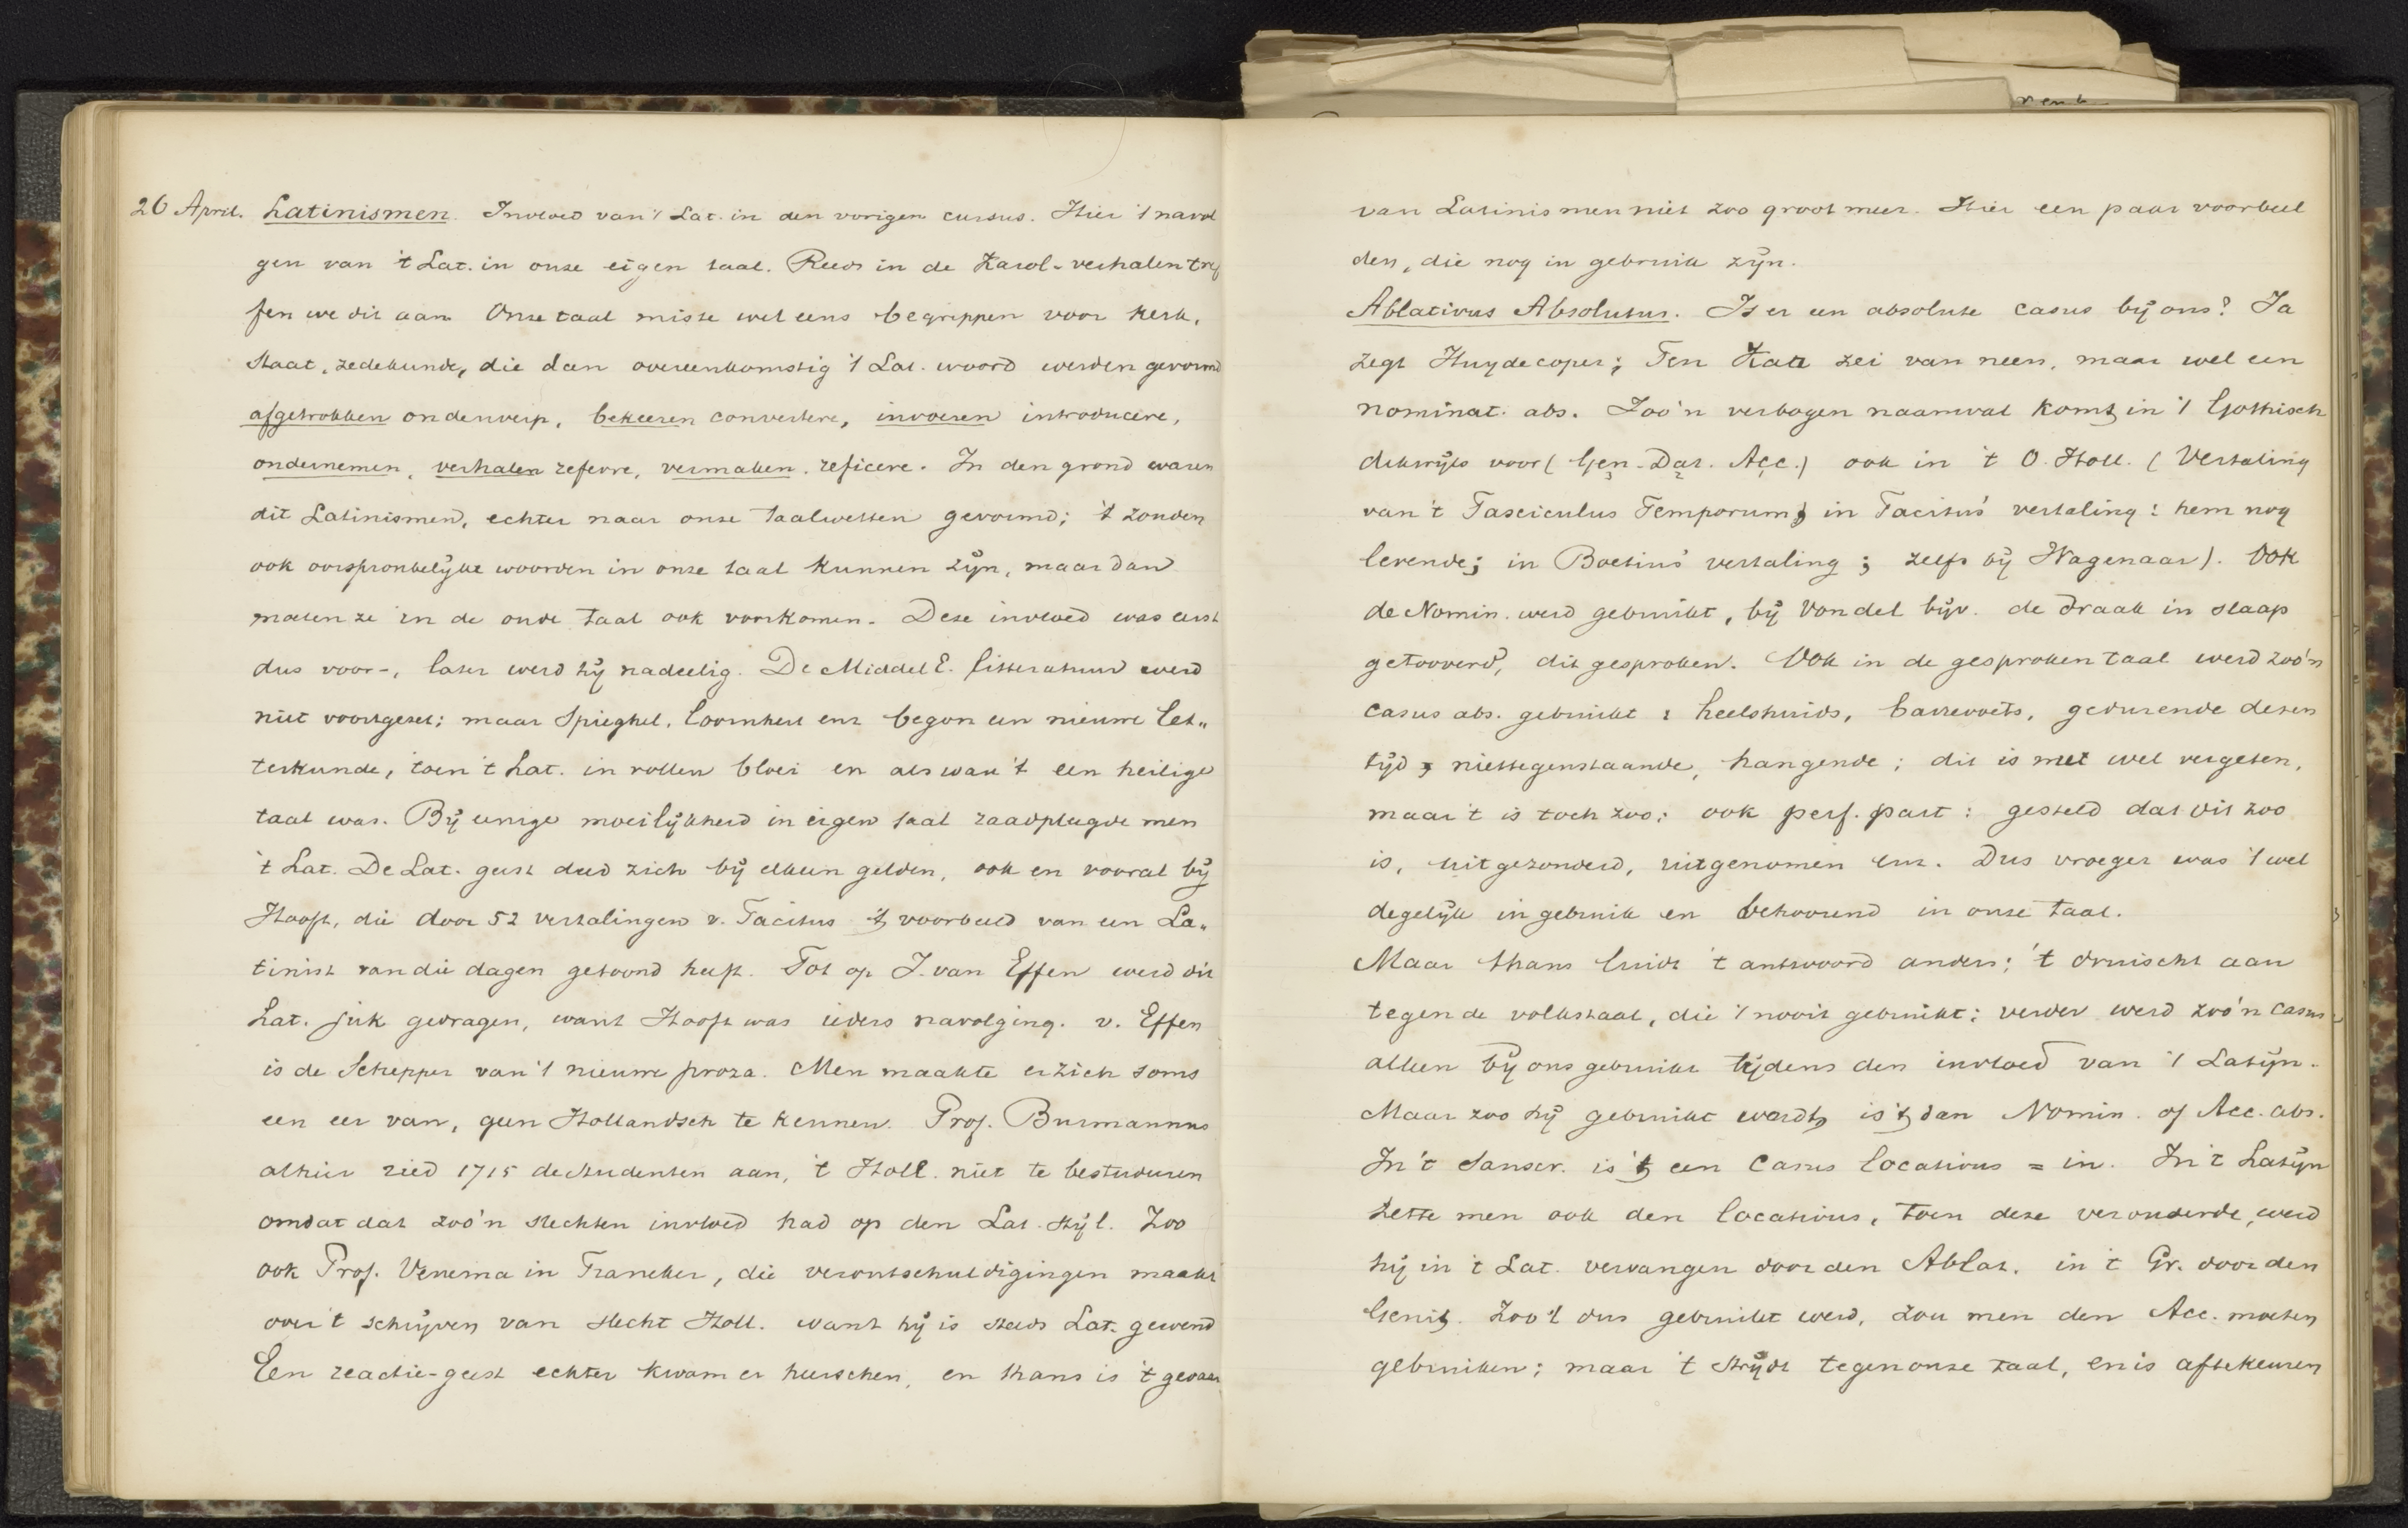 26 April. Latinismen. Invloed van 't Lat. in den vorigen cursus. Hier 't navol
gen van 't Lat. in onze eigen taal. Reeds in de Karol-verhalen tref
fen we dit aan. Onze taal miste wel eens begrippen voor kerk,
staat, zedekunde, die dan overeenkomstig 't Lat. woord werden gevormd
afgetrokken onderwerp, bekeeren convertere, invoeren introducere,
ondernemen, verhalen referre, vermaken, reficere. In den grond waren
dit Latinismen, echter naar onze taalwetten gevormd; 't zouden
ook oorspronkelijke woorden in onze taal kunnen zijn, maar dan
moeten ze in de oude taal ook voorkomen. Deze invloed was eerst
dus voor-, later werd hij nadeelig. De Middel E. litteratuur werd
niet voortgezet; maar Spieghel, Coornhert enz begon een nieuwe let„
terkunde, toen 't Lat. in vollen bloei en als waar 't een heilige
taal was. Bij eenige moeilijkheid in eigen taal raadpleegde men
't Lat. De Lat. geest deed zich bij elkeen gelden, ook en vooral bij
Hooft, die door 52 vertalingen v. Tacitus 't voorbeeld van een La„
tinist van die dagen getoond heeft. Tot op J. van Effen werd dit
Lat. juk gedragen, want Hooft was ieders navolging. v. Effen
is de Schepper van 't nieuwe proza. Men maakte er zich soms
een eer van, geen Hollandsch te kennen. Prof. Burmannus
alhier ried 1715 de studenten aan, 't Holl. niet te bestuderen
omdat dat zoo'n slechten invloed had op den Lat. stijl. Zoo
ook Prof. Venema in Franeker, die verontschuldigingen maakt
over 't schrijven van slecht Holl. want hij is steeds Lat. gewend
Een reactie-geest echter kwam er heerschen, en thans is 't gevaar
van Latinismen niet zoo groot meer. Hier een paar voorbeel
den, die nog in gebruik zijn.
Ablativus Absolutus. Is er een absolute casus bij ons? Ja
zegt Huydecoper; Ten Kate zei van neen, maar wel een
nominat. abs. Zoo'n verbogen naamval komt in 't Gothisch
dikwijls voor (Gen. Dat. Acc.) ook in 't O. Holl. (Vertaling
van 't Fasciculus Temporum; in Tacitus' vertaling: hem nog
levende; in Boetius' vertaling; zelfs bij Wagenaar). Ook
de Nomin. werd gebruikt, bij Vondel bijv. de draak in slaap
getooverd, dit gesproken. Ook in de gesproken taal werd zoo'n
casus abs. gebruikt: heelshuids, barrevoets, gedurende dezen
tijd, niettegenstaande, hangende; dit is met wel vergeten,
maar 't is toch zoo; ook perf. part: gesteld dat dit zoo
is, uitgezonderd, uitgenomen enz. Dus vroeger was 't wel
degelijk in gebruik en behoorend in onze taal.
Maar thans luidt 't antwoord anders; 't druischt aan
tegen de volkstaal, die 't nooit gebruikt; verder werd zoo'n casus
alleen bij ons gebruikt tijdens den invloed van 't Latijn.
Maar zoo hij gebruikt wordt, is 't dan Nomin. of Acc. abs.
In 't Sanscr. is 't een Casus locativus = in. In 't Latijn
zette men ook den locativus, toen deze verouderde, werd
hij in 't Lat. vervangen door den Ablat. in 't Gr. door den
Genit. Zoo 't dus gebruikt werd, zou men den Acc. moeten
gebruiken; maar 't strijdt tegen onze taal, en is aftekeuren